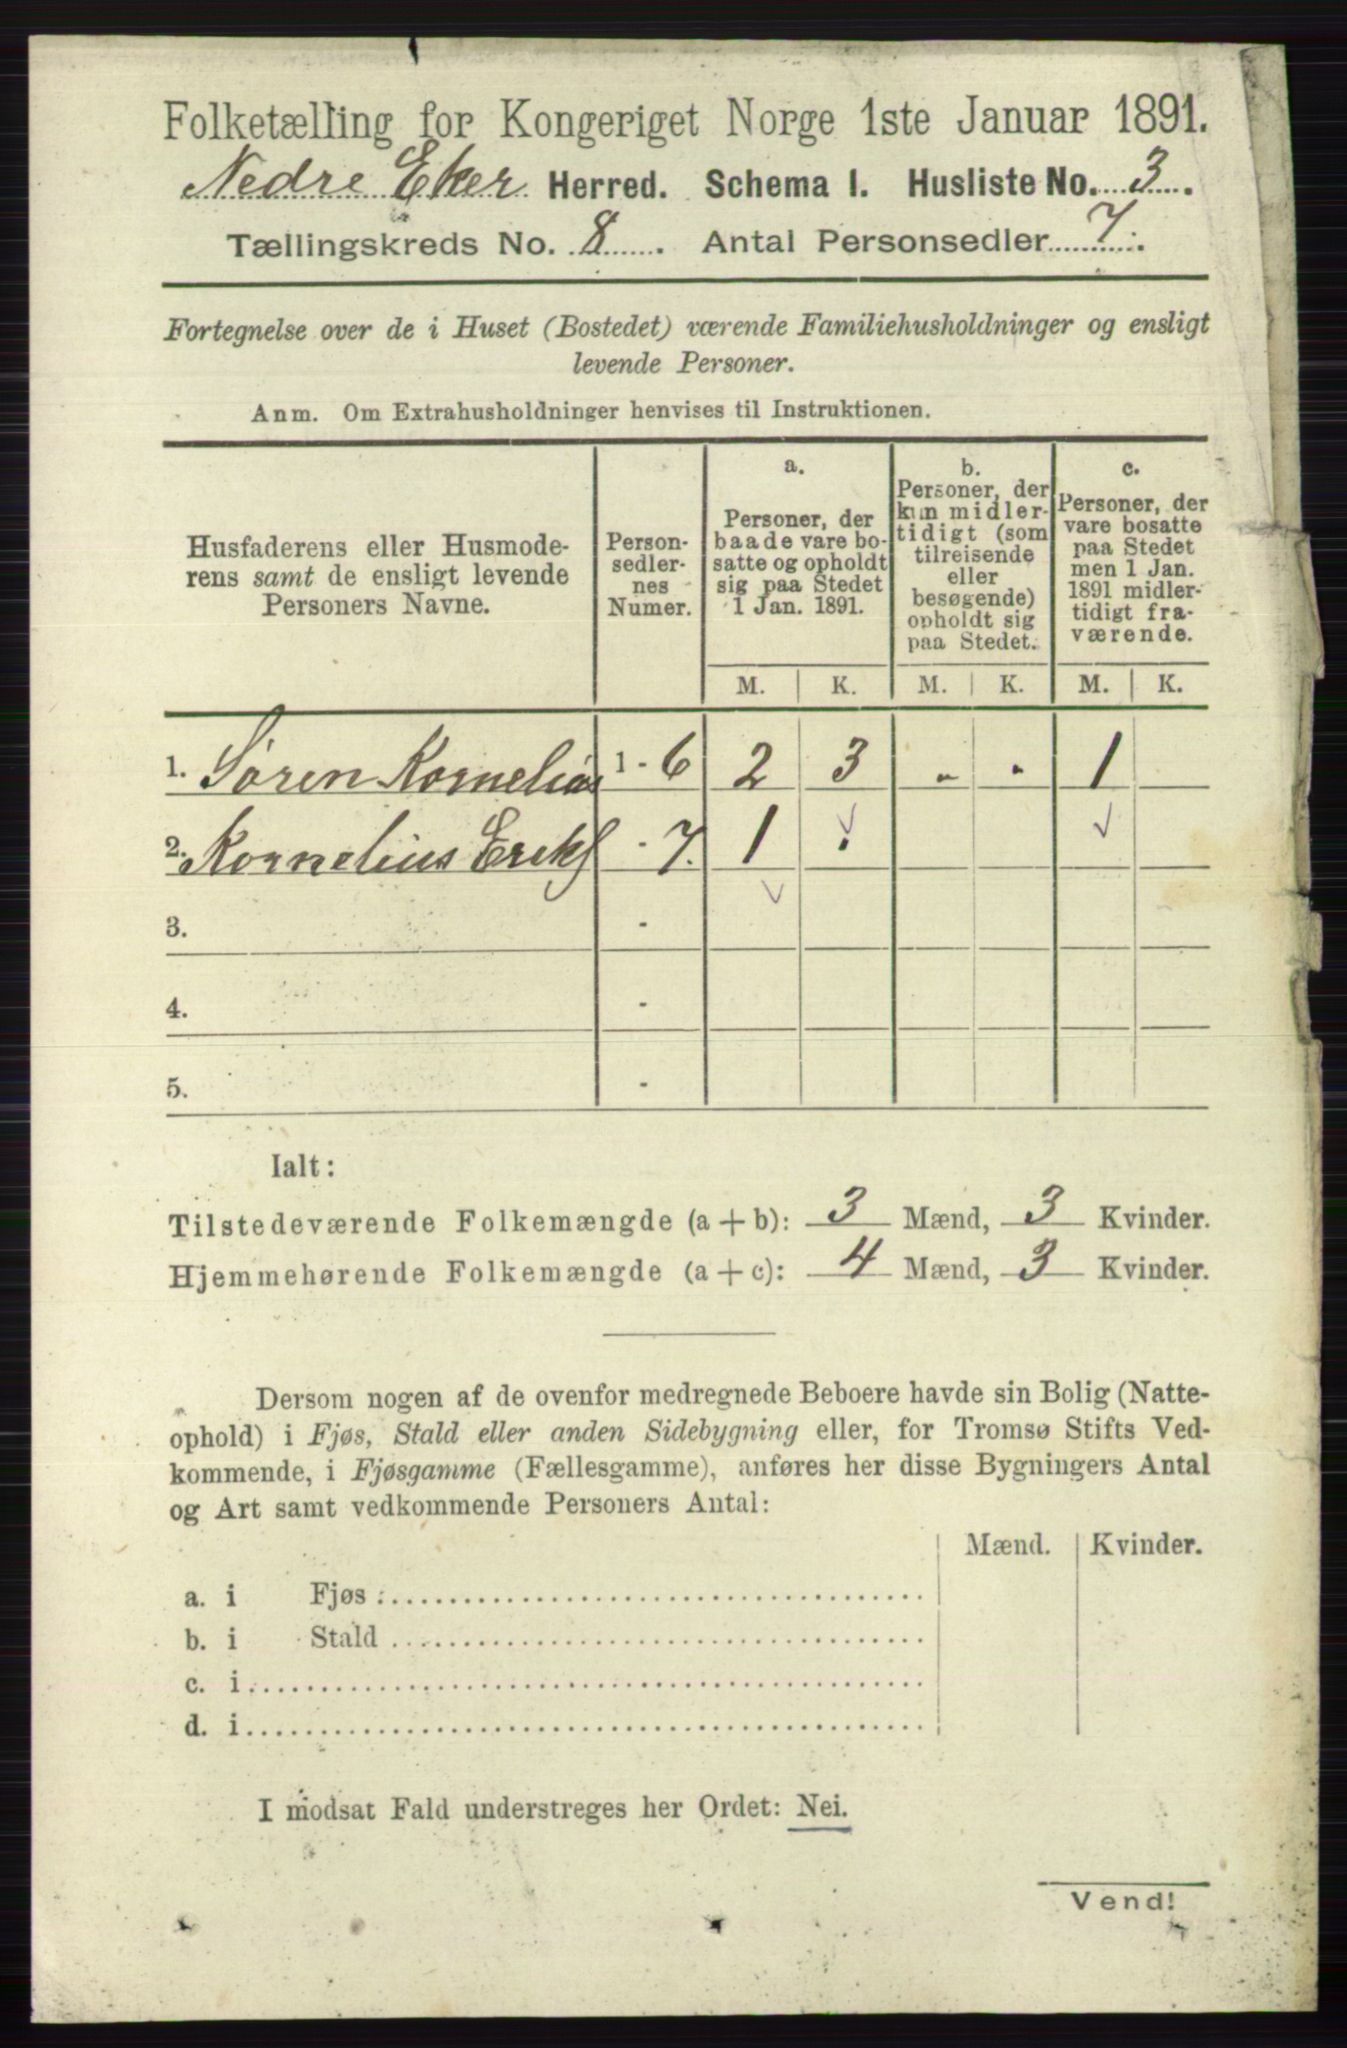 Folketælling for Kongeriget Norge 1ste Januar 1891.
Nedre Eker Herred. Schema I. Husliste No. 3.
Tællingskreds No. 8. Antal Personsedler 7.
Fortegnelse over de i Huset (Bostedet) værende Familiehusholdninger og ensligt
levende Personer.
Anm. Om Extrahusholdninger henvises til Instruktionen.
Husfaderens eller Husmode-
rens samt de ensligt levende
Personers Navne.
Person-
sedler-
nes
Numer.
a.
Personer, der
baade vare bo-
satte og opholdt
sig paa Stedet
1 Jan. 1891.
b.
Personer, der
kun midler-
tidigt (som
tilreisende
eller
besøgende)
opholdt sig
paa Stedet.
c.
Personer, der
vare bosatte
paa Stedet
men 1 Jan.
1891 midler-
tidigt fra-
værende.
M. K. M. K. M. K.
1. Søren Kornelius 1 - 6 2 3 - - 1
2. Kornelius Eriks - 7. 1 -
3. -
4. -
5. -
Ialt:
Tilstedeværende Folkemængde (a + b): 3 Mænd, 3 Kvinder.
Hjemmehørende Folkemængde (a + c): 4 Mænd, 3 Kvinder.
Dersom nogen af de ovenfor medregnede Beboere havde sin Bolig (Natte-
ophold) i Fjøs, Stald eller anden Sidebygning eller, for Tromsø Stifts Ved-
kommende, i Fjøsgamme (Fællesgamme), anføres her disse Bygningers Antal
og Art samt vedkommende Personers Antal:
Mænd. Kvinder.
a. i Fjøs
b. i Stald
c. i
d. i
I modsat Fald understreges her Ordet: Nei.
Vend!